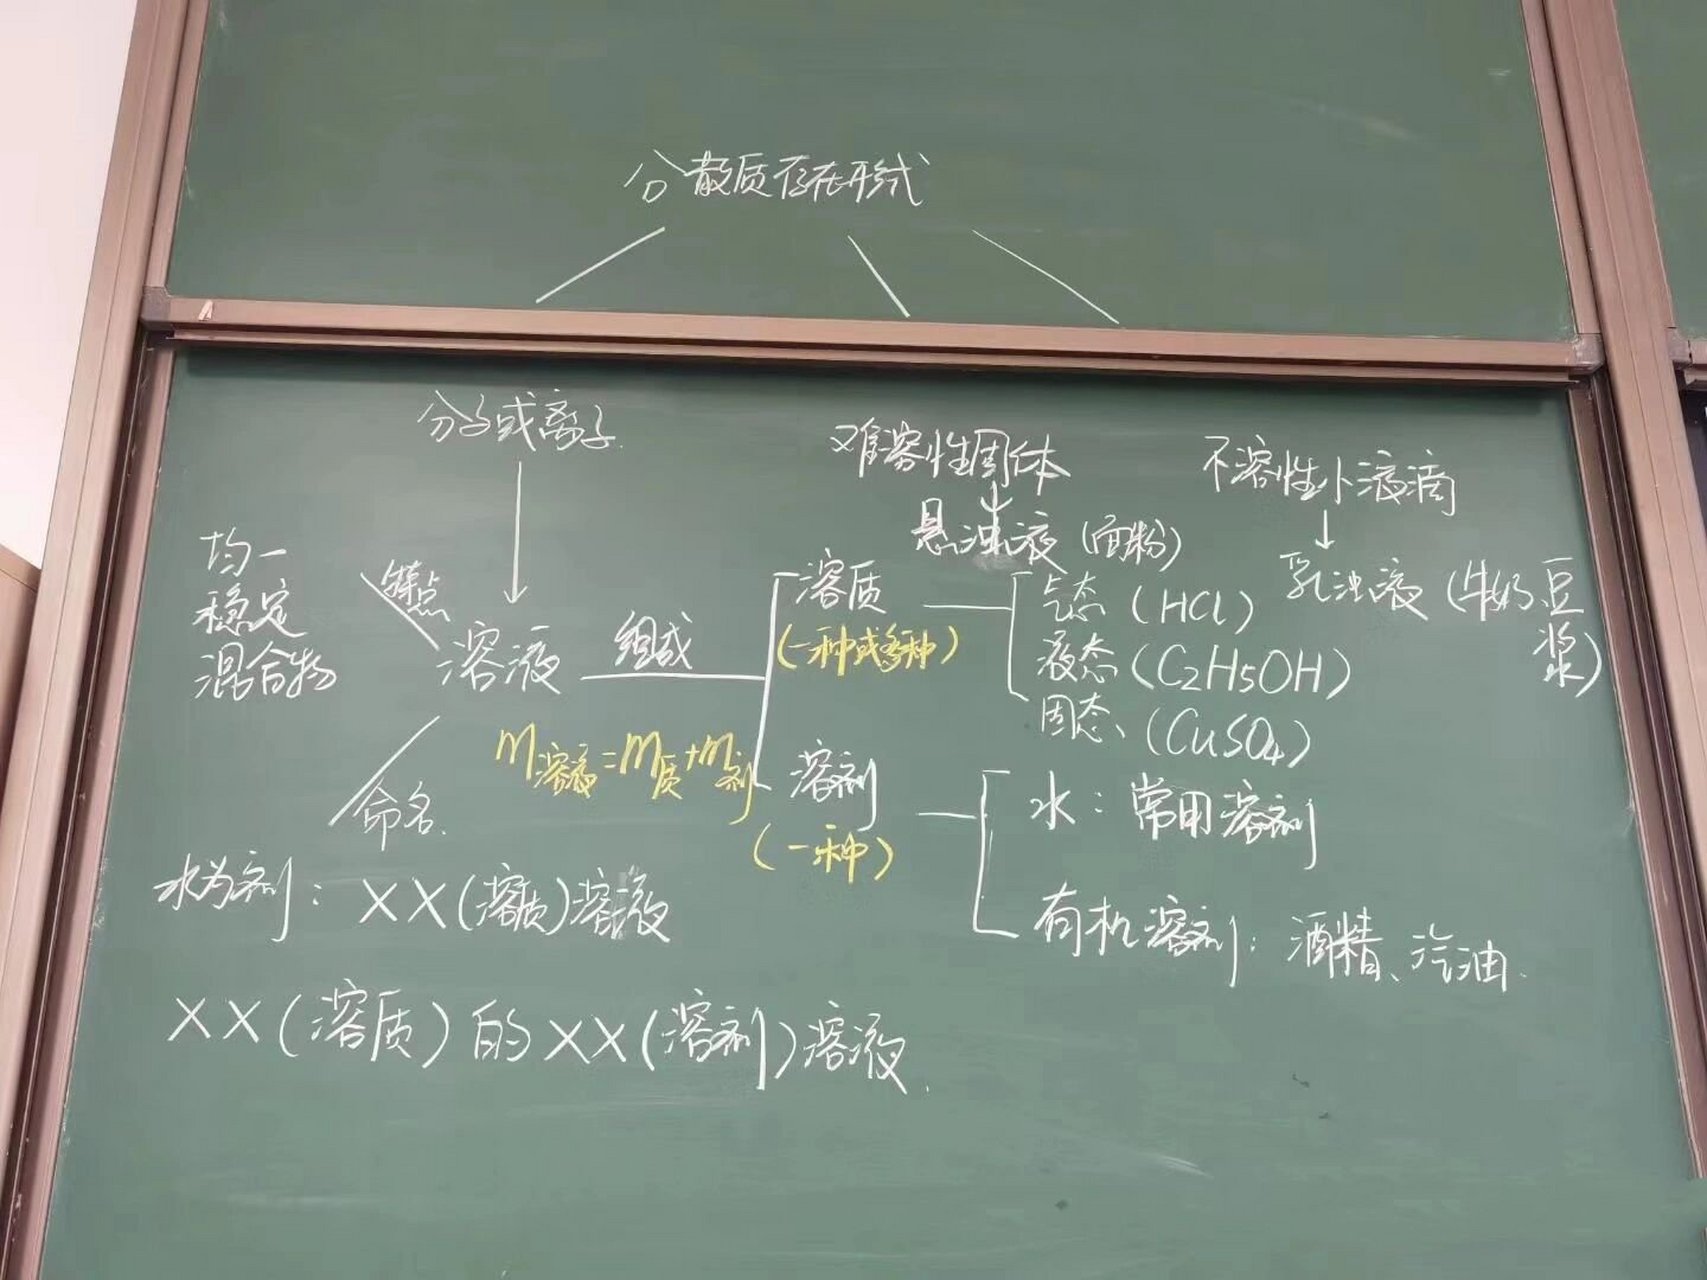 分散质存在形式
分子或离子
难溶性固体
不溶性小液滴
悬浊液（面粉）
乳浊液（牛奶 豆浆）
均一
稳定
混合物
特点
溶液
组成
溶质
（一种或多种）
气态（HCl）
液态（C2H5OH）
固态（CuSO4）
m溶液=m质+m剂
溶剂
（一种）
水：常用溶剂
有机溶剂：酒精、汽油.
命名.
水为剂：XX（溶质）溶液
XX（溶质）的XX（溶剂）溶液.